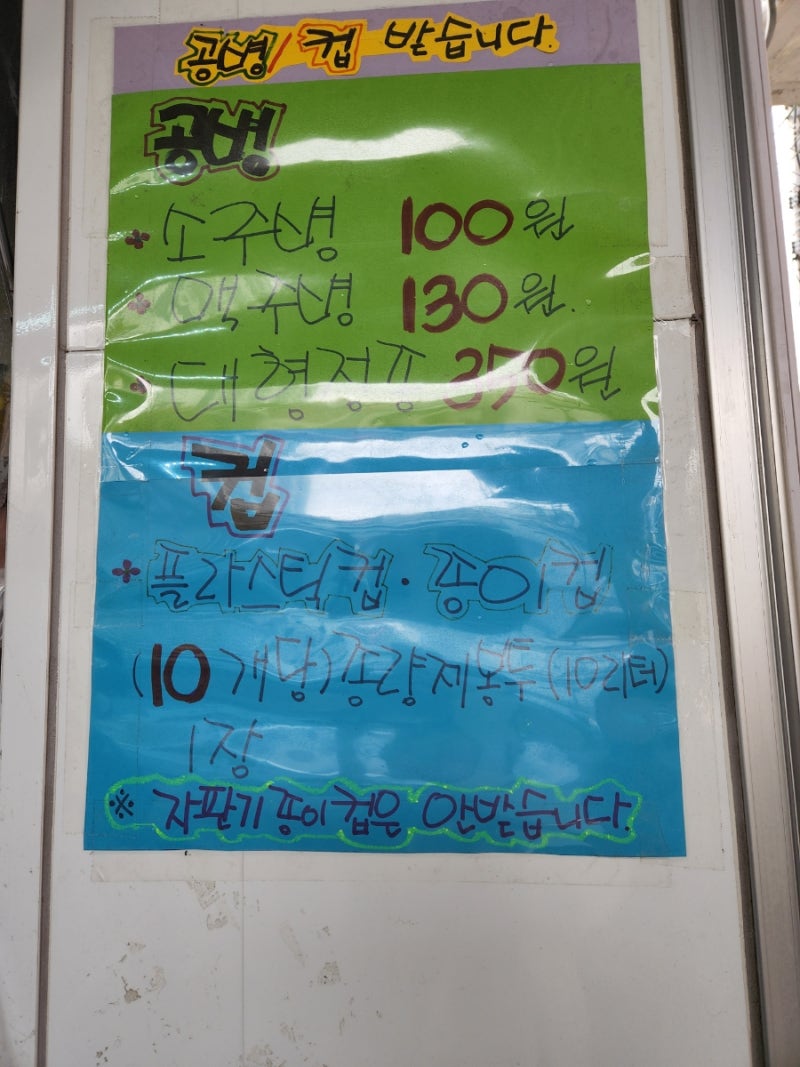 공병/컵 받습니다.
공병
소주병 100원
맥주병 130원.
대형정종 370원
컵
플라스틱컵·종이컵
(10개당)종량제봉투(10리터)
1장
※ 자판기종이컵은 안받습니다.